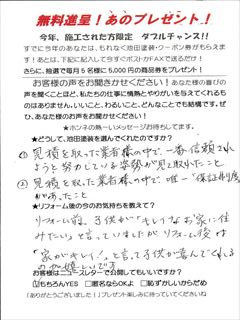 無料進呈！あのプレゼント！
今年、施工された方限定　ダブルチャンス!!
すでに今年のあなたは、もれなく池田塗装・クーポン券がもらえます！あとは、下記に記入して今すぐポストかFAXで送るだけ！
さらに、抽選で毎月5名様に5,000円の商品券をプレゼント！
お客様の声をお聞きかせください！あなた様の喜びの声を聞くことほど、私たちの仕事に情熱とやりがいを与えてくれるものはありません。いいこと、わるいこと、どんなことでも結構です。ぜひ、あなた様のお声をお聞かせください！
★ホンネの熱～いメッセージお待ちしてます。
★どうして、池田塗装を選んでくれたのですか？
① 見積を取った業者様の中で、一番信頼されようと努力している姿勢が見て取れたこと
② 見積を取った業者様の中で、唯一保証制度があったこと
★リフォーム後の今のお気持を教えて？
リフォーム前、子供が"キレイなお家に住みたい"と言っていましたがリフォーム後は"家がキレイ"と言って子供が喜んでくれるのが嬉しいです
お客様は　ニュースレターで公開してもいいですか？
①もちろんYES　□匿名ならOKよ　□恥ずかしいからだめ
「ありがとうございました！」プレゼント楽しみに待っていてくださいね